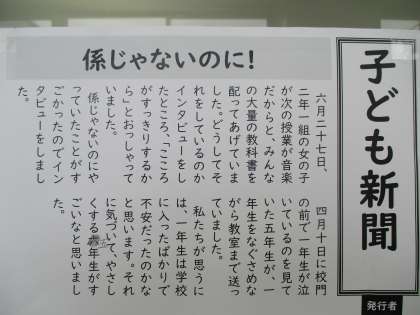 子ども新聞
発行者
係じゃないのに!
六月二十七日、
二年一組の女の子
が次の授業が音楽
だからと、みんな
の大量の教科書を
配ってあげていま
した。どうしてそ
れをしているのか
インタビューをし
たところ、「こころ
がすっきりするか
ら」とおっしゃって
いました。
係じゃないのにや
っていたことがす
ごかったのでイン
タビューをしまし
た。
四月十日に校門
の前で一年生が泣
いているのを見て
いた五年生が、一
年生をなぐさめな
がら教室まで送っ
ていました。
私たちが思うに
は、一年生は学校
に入ったばかりで
不安だったのかな
と思います。それ
に気づいて、やさし
くする五年生がす
ごいなと思いまし
た。